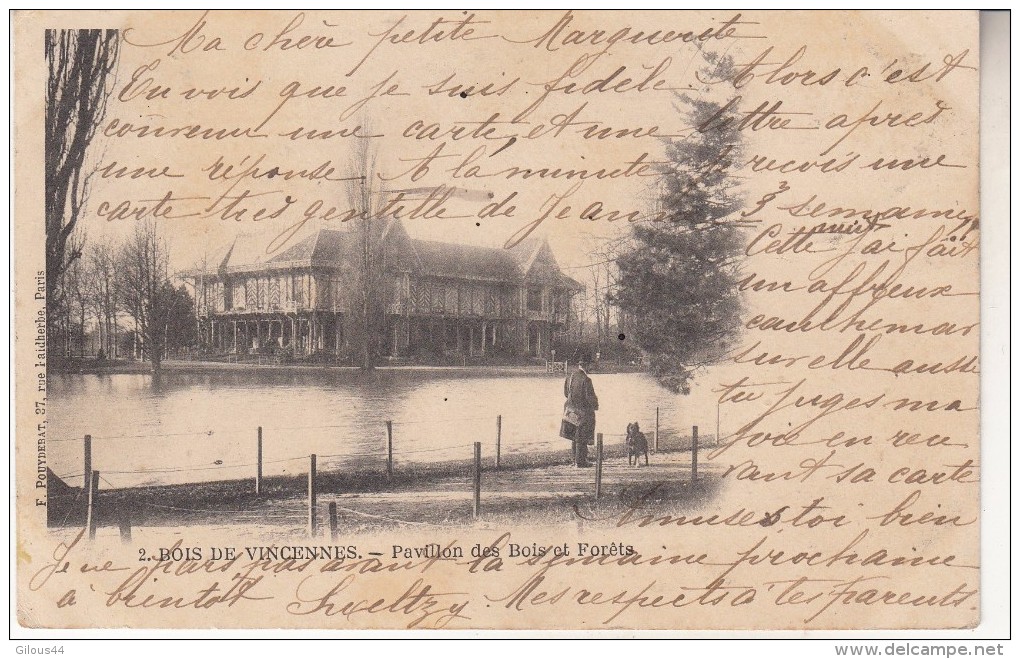 Ma chère petite Marguerite
Tu vois que je suis fidèle. Alors c'est
convenu une carte, et une lettre après
une réponse. A la minute je reçois une
carte très gentille de Jeanne 3 semaines
Cette nuit j'ai fait
un affreux
cauchemar
sur elle aussi
tu juges ma
joie en rece
vant sa carte
Amuses toi bien
F. POUYDEBAT, 27, rue Faidherbe, Paris
2. BOIS DE VINCENNES. — Pavillon des Bois et Forêts
Je ne pars pas avant la semaine prochaine
à bientôt Mes respects à tes parents.
Gilous44
www.delcampe.net